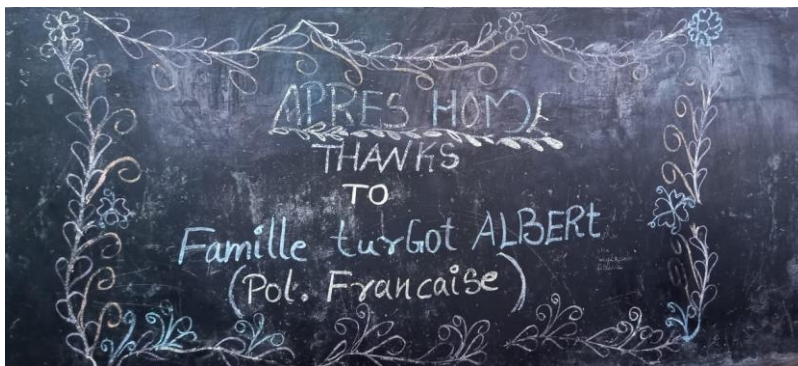 APRES HOME
THANKS
TO
Famille turGot ALBERt
(Pol. Francaise)